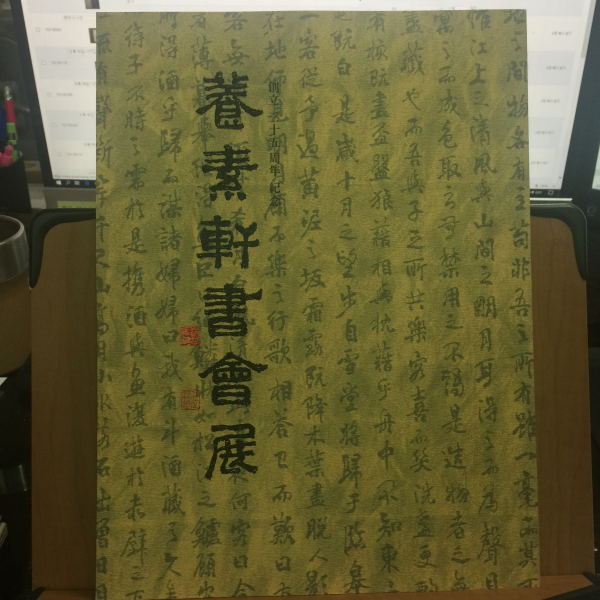 地之間物各有主苟非吾之所有雖一毫而莫可
惟江上之清風與山間之明月耳得之而為聲目
寓之而成色取之無禁用之不竭是造物者之無
盡藏也而吾與子之所共樂客喜而笑洗盞更酌
肴核既盡盃盤狼藉相與枕藉乎舟中不知東
之既白是歲十月之望步自雪堂將歸于臨皋
二客從予過黃泥之坂霜露既降木葉盡脫人影
在地仰見明月顧而樂之行歌相答已而歎曰有
創立十五周年紀念
養素軒書會展
何客曰今
之鱸顧
所得酒乎歸而謀諸婦婦曰我有斗酒藏之久矣
待子不時之需於是攜酒與魚復遊於赤壁之下
有聲斷岸千尺山高月小水落石出曾日月